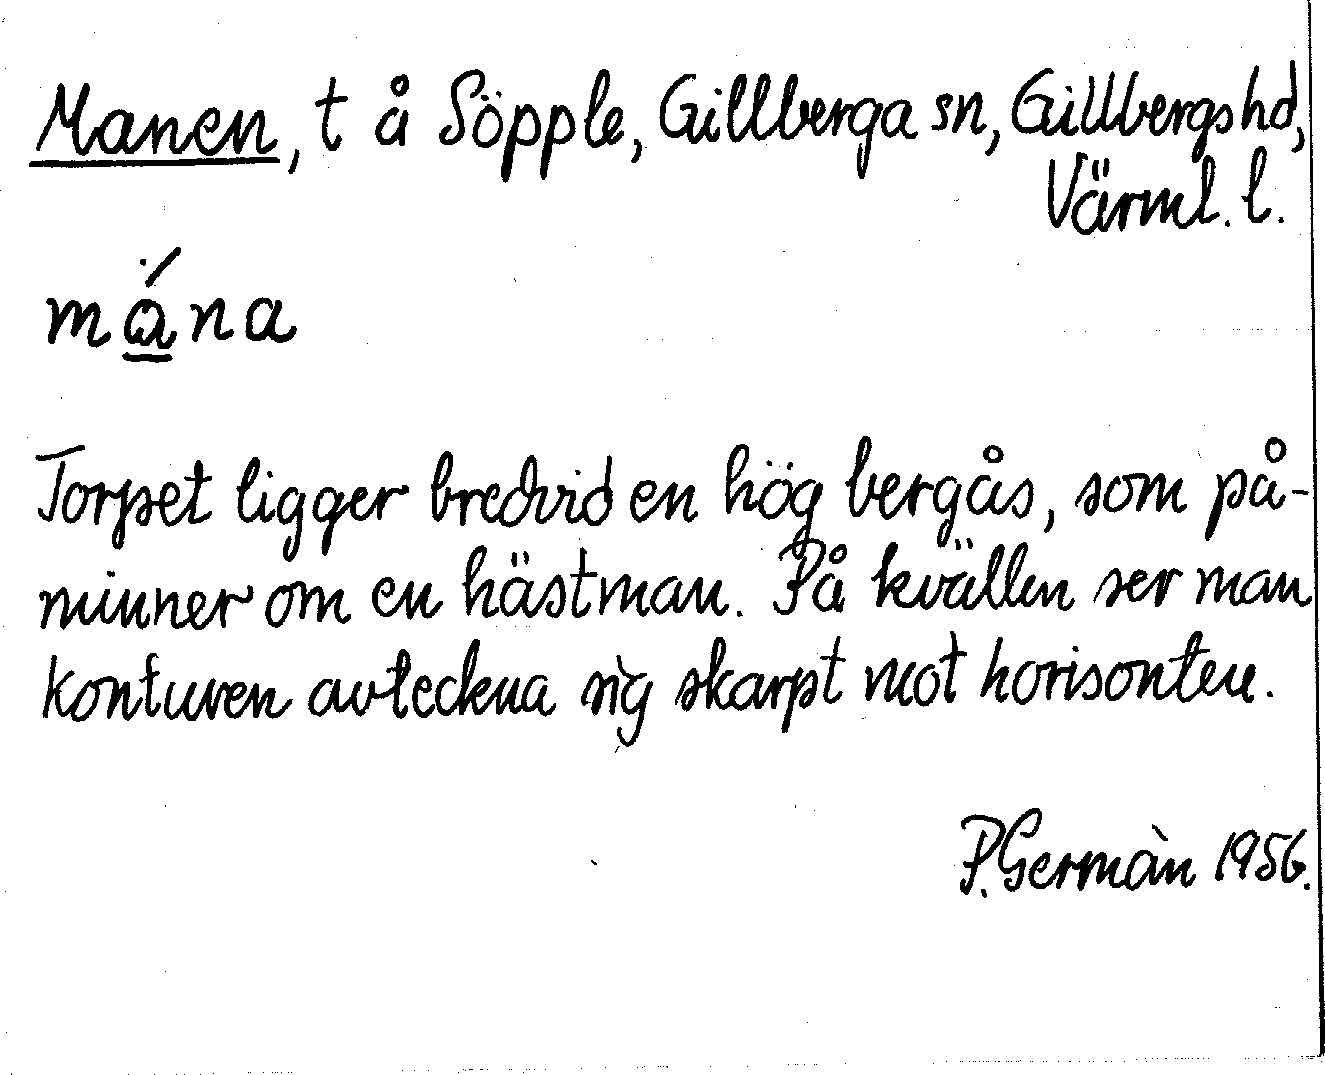 Manen, t å Söpple, Gillberga sn, Gillbergs hd,
Värml. l.
mána
Torpet ligger bredvid en hög bergås, som på-
minner om en hästman. På kvällen ser man
konturen avteckna sig skarpt mot horisonten.
P. Germàn 1956.